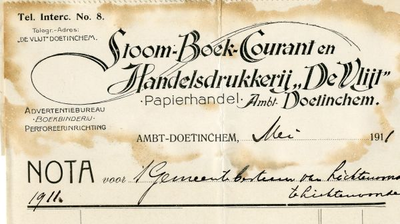 Tel. Interc. No. 8.
Telegr.-Adres:
„DE VLIJT" DOETINCHEM.
Stoom-Boek-Courant en
Handelsdrukkerij „De Vlijt"
Papierhandel. Ambt-Doetinchem.
ADVERTENTIEBUREAU
BOEKBINDERIJ-
PERFOREERINRICHTING
AMBT-DOETINCHEM, Mei 1911
NOTA voor 't Gemeentebestuur van Lichtenvoorde
1911. te Lichtenvoorde